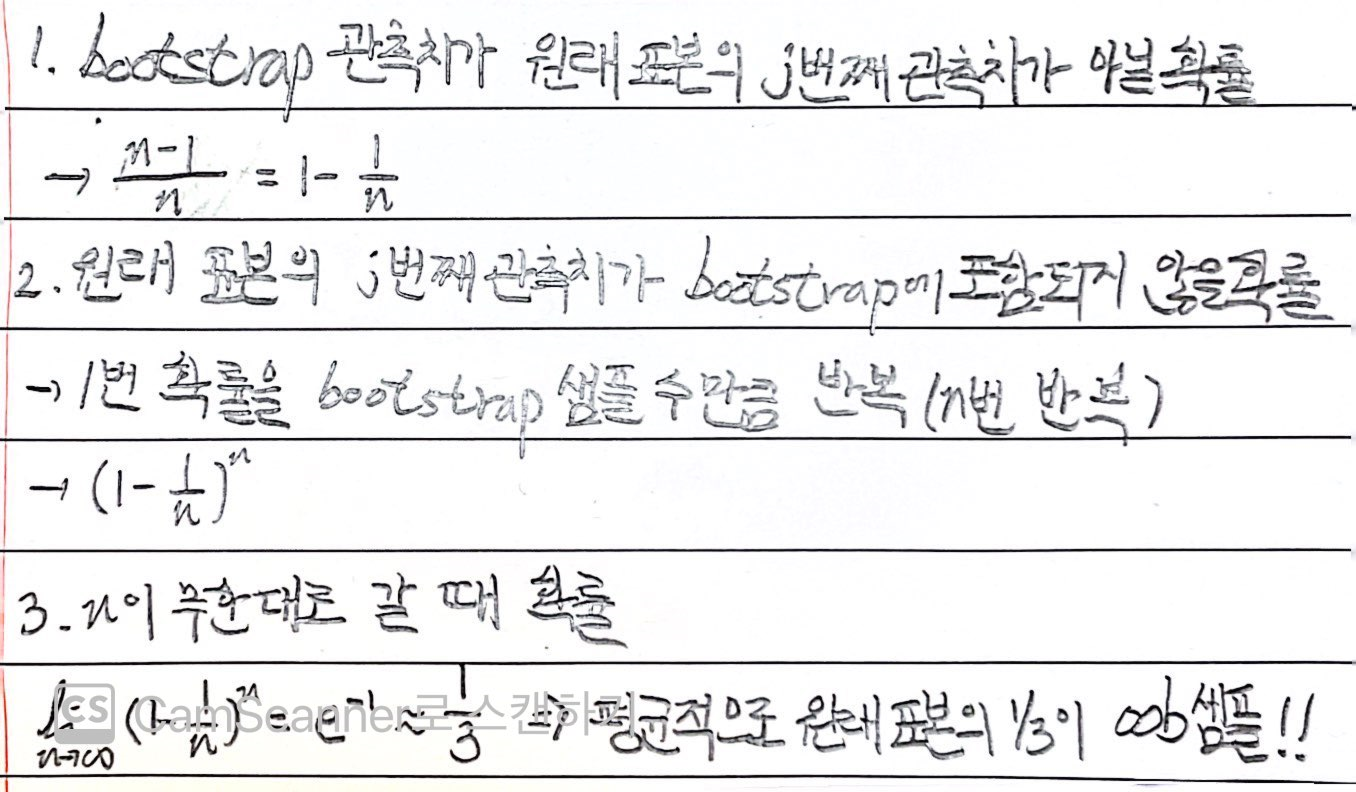 1. bootstrap 관측치가 원래 표본의 j번째 관측치가 아닐 확률
→ n-1/n = 1 - 1/n
2. 원래 표본의 j번째 관측치가 bootstrap에 포함되지 않을 확률
→ 1번 확률을 bootstrap 샘플 수만큼 반복 (n번 반복)
→ (1 - 1/n)^n
3. n이 무한대로 갈 때 확률
lim n→∞ (1 - 1/n)^n = e^-1 ≈ 1/3 ⇒ 평균적으로 원래 표본의 1/3이 oob 샘플!!
CS CamScanner로 스캔하기